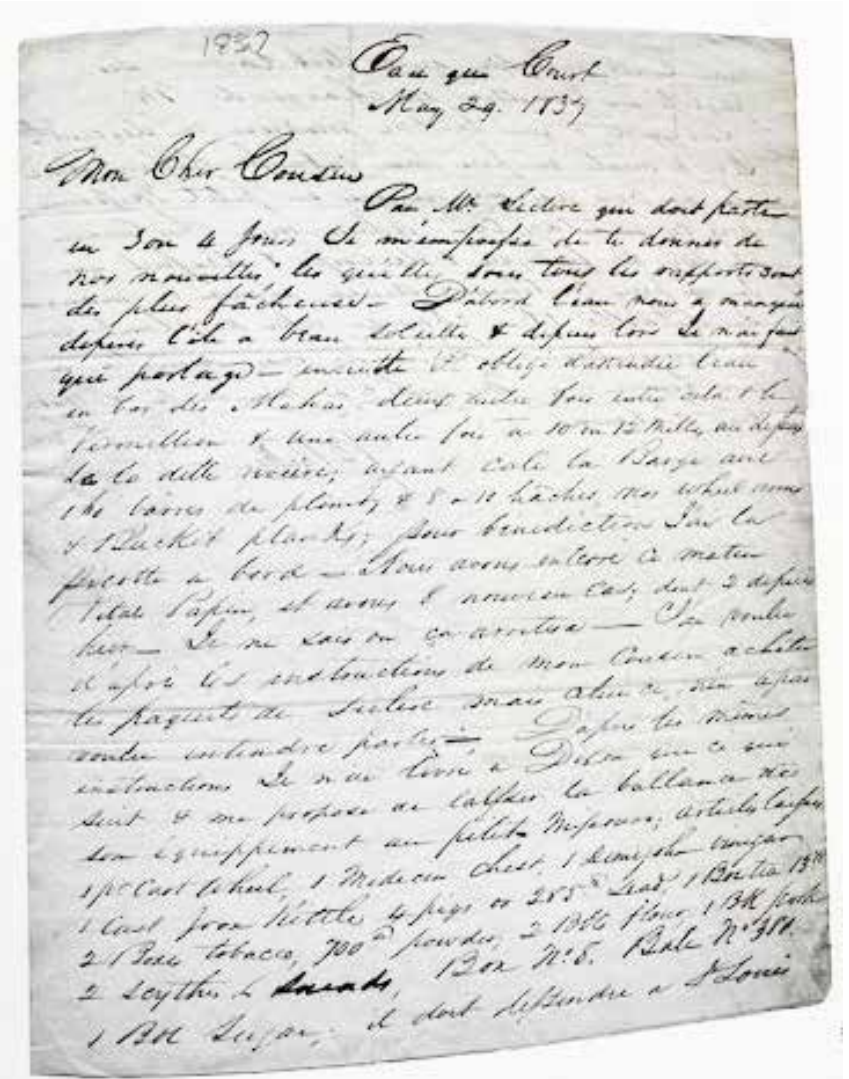 1837
Eau qui Court
May 29. 1837
Mon Cher Cousin
Par Mr. Leclerc qui doit partir
en 3 ou 4 jours Je m'empresse de te donner de
nos nouvelles les quelles sous tous les rapports sont
des plus fâcheuse — D'abord l'eau nous a manqué
depuis l'ile a beau soliette & depuis lors Je n'ai fait
que portage — ensuite obligé d'attendre l'eau
en bas des Mahas deux autre fois entre cela & le
Vermillion & une autre fois a 10 ou 12 Miles au dessus
de la dite rivière; ayant calé la Barge avec
160 barres de plomb, & 8 a 10 haches, nos wheel arms
& Bucket planks; pour benediction J'ai la
picotte a bord — Nous avons enterré ce matin
Vital Papin, et avons 8 nouveau cas, dont 2 depuis
hier — Je ne sais ou ça arretera — J'ai voulu
d'après les instructions de mon Cousin acheter
les paquets de Leclerc mais a pas
voulu entendre parler — D'apres les mêmes
instructions Je n'ai livré a Dixon que ce qui
suit & me propose de laisser la ballance de
son équippement au petit Missouri; articles laissés
1 pr Cart Wheel, 1 Medecin Chest, 1 demijohn vinegar
1 Cast Iron Kettle 4 pigs or 285 lead, 1 Box tea 13
2 Boxes tobacco, 700 powder, 2 Bbls flour 1 Bbl pork
2 Scythes & Sneads, Box No. 8. Bale No. 381.
1 Bbl Sugar; il doit dessendre a St Louis